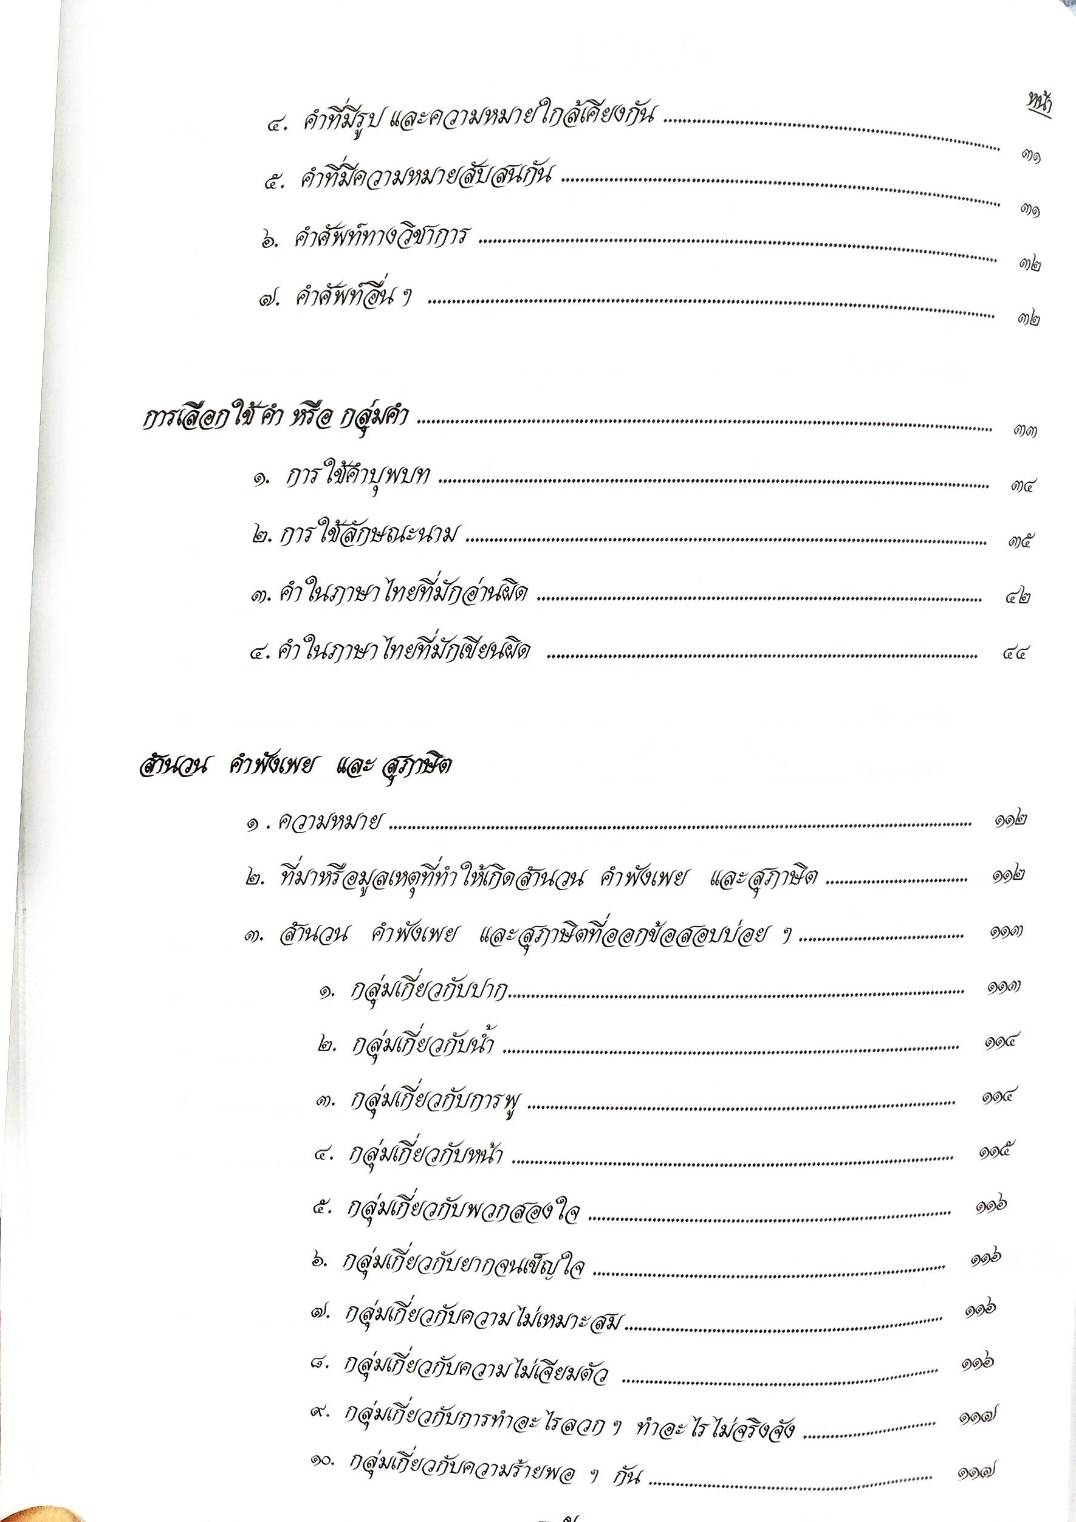 หน้า
๔. คำที่มีรูป และความหมายใกล้เคียงกัน ๓๑
๕. คำที่มีความหมายสับสนกัน ๓๑
๖. คำศัพท์ทางวิชาการ ๓๒
๗. คำศัพท์อื่น ๆ ๓๒
การเลือกใช้ คำ หรือ กลุ่มคำ ๓๓
๑. การใช้คำบุพบท ๓๔
๒. การใช้ลักษณะนาม ๓๕
๓. คำในภาษาไทยที่มักอ่านผิด ๔๒
๔. คำในภาษาไทยที่มักเขียนผิด ๔๔
สำนวน คำพังเพย และ สุภาษิต
๑ . ความหมาย ๑๑๒
๒. ที่มาหรือมูลเหตุที่ทำให้เกิดสำนวน คำพังเพย และสุภาษิต ๑๑๒
๓. สำนวน คำพังเพย และสุภาษิตที่ออกข้อสอบบ่อย ๆ ๑๑๓
๑. กลุ่มเกี่ยวกับปาก ๑๑๓
๒. กลุ่มเกี่ยวกับน้ำ ๑๑๔
๓. กลุ่มเกี่ยวกับการพู ๑๑๔
๔. กลุ่มเกี่ยวกับหน้า ๑๑๕
๕. กลุ่มเกี่ยวกับพวกสองใจ ๑๑๖
๖. กลุ่มเกี่ยวกับยากจนเข็ญใจ ๑๑๖
๗. กลุ่มเกี่ยวกับความไม่เหมาะสม ๑๑๖
๘. กลุ่มเกี่ยวกับความไม่เจียมตัว ๑๑๖
๙. กลุ่มเกี่ยวกับการทำอะไรลวก ๆ ทำอะไรไม่จริงจัง ๑๑๗
๑๐. กลุ่มเกี่ยวกับความร้ายพอ ๆ กัน ๑๑๗